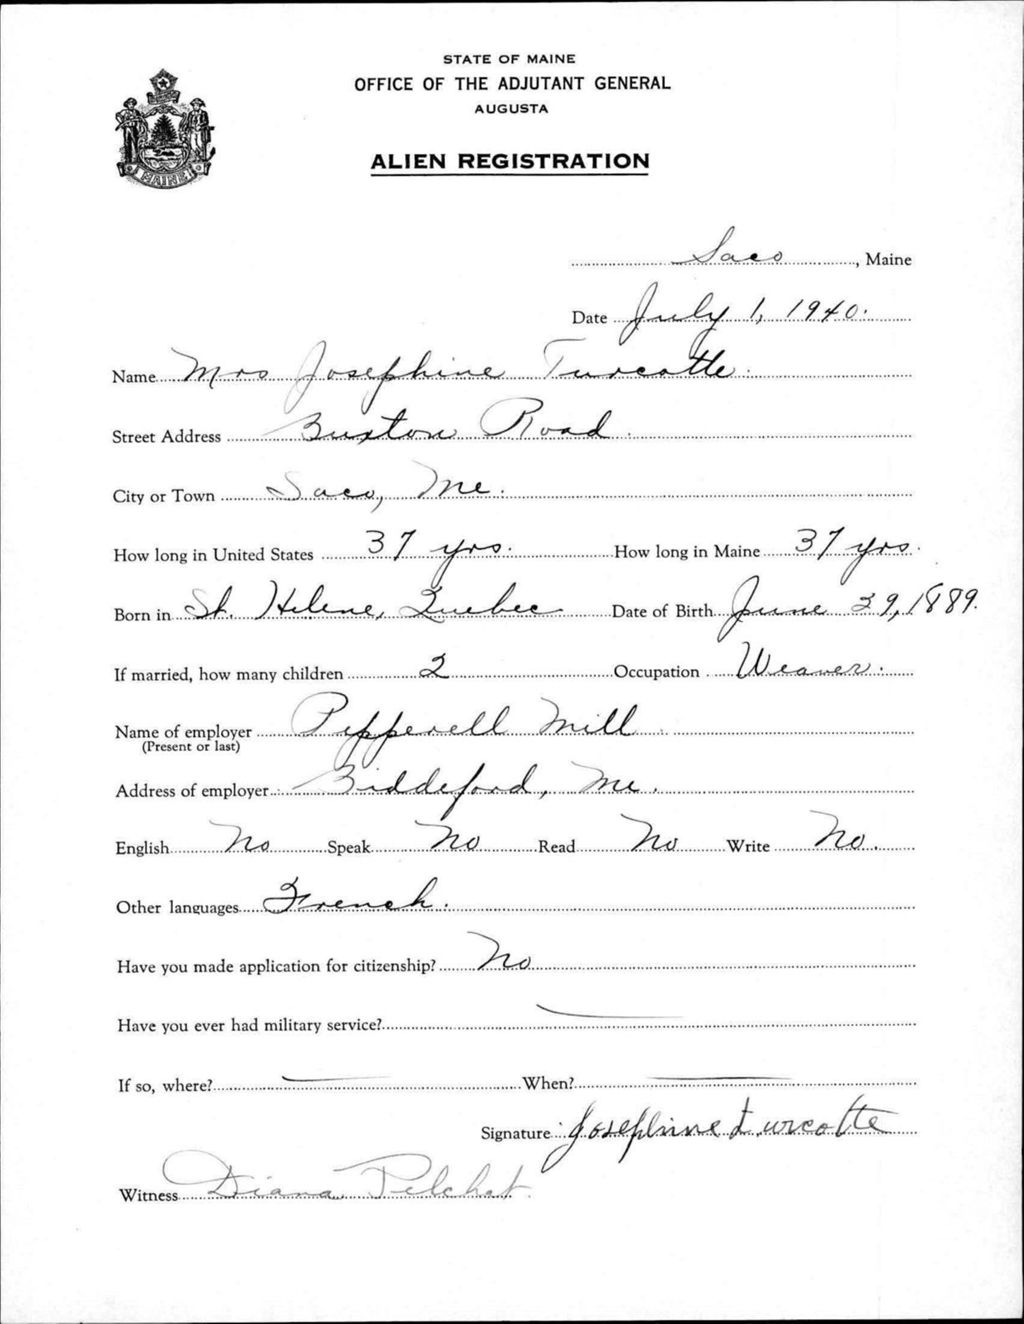 STATE OF MAINE
OFFICE OF THE ADJUTANT GENERAL
AUGUSTA
ALIEN REGISTRATION
MAINE
Saco, Maine
Date July 1, 1940.
Name Mrs Josephine Turcotte.
Street Address Buxton Road.
City or Town Saco, Me.
How long in United States 37 yrs. How long in Maine 37 yrs.
Born in St. Helene, Quebec Date of Birth June 29, 1889.
If married, how many children 2 Occupation Weaver.
Name of employer Pepperell Mill.
(Present or last)
Address of employer Biddeford, Me.
English No Speak No Read No Write No.
Other languages French.
Have you made application for citizenship? No
Have you ever had military service? —
If so, where? — When? —
Signature Josephine Turcotte
Witness Diana Pelchat.